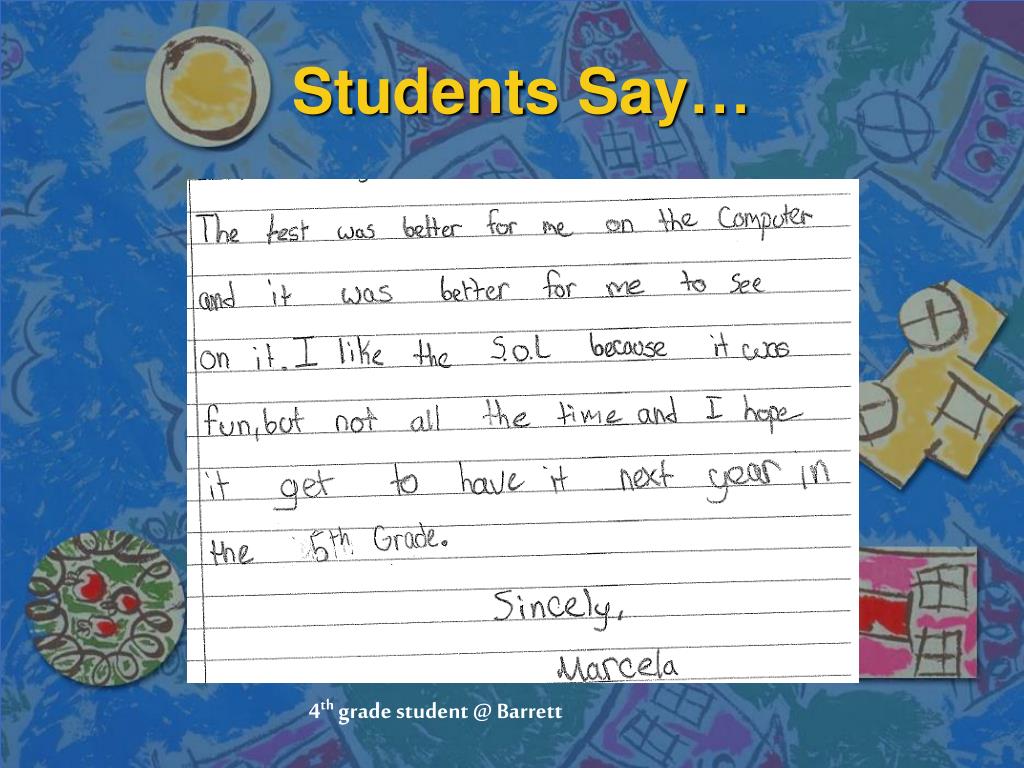 Students Say…
The test was better for me on the Computer
and it was better for me to see
on it. I like the S.O.L because it was
fun, but not all the time and I hope
it get to have it next year in
the 5th Grade.
Sincely,
Marcela
4th grade student @ Barrett